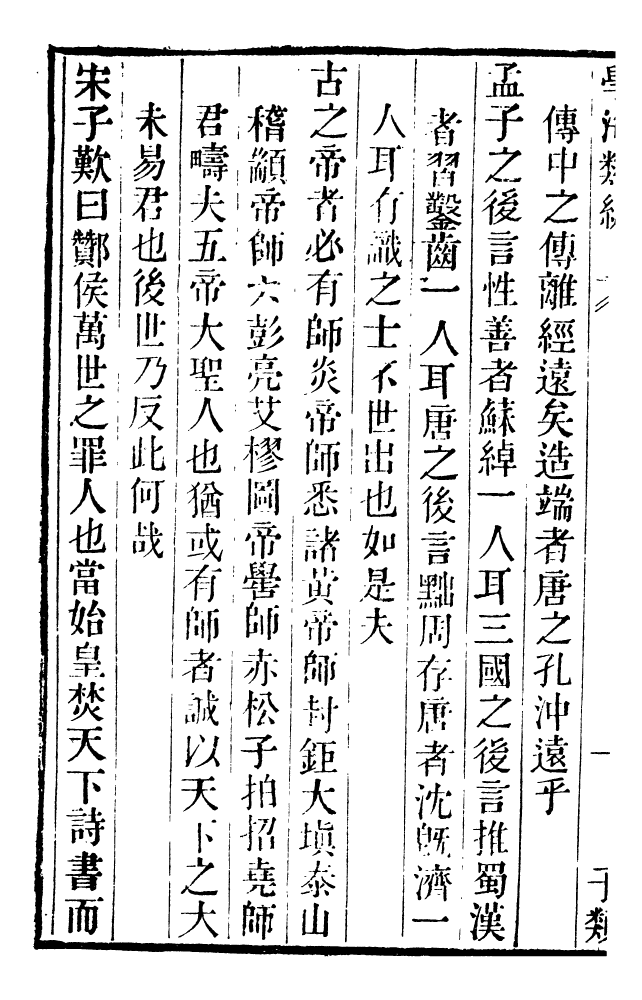 學海類編
一
子類
傳中之傳離經遠矣造端者唐之孔沖遠乎
孟子之後言性善者蘇綽一人耳三國之後言推蜀漢
者習鑿齒一人耳唐之後言黜周存唐者沈旣濟一
人耳有識之士不世出也如是夫
古之帝者必有師炎帝師悉諸黃帝師封鉅大塡泰山
稽顓帝師六彭亮艾樛圖帝嚳師赤松子拍招堯師
君疇夫五帝大聖人也猶或有師者誠以天下之大
未易君也後世乃反此何哉
宋子歎曰酇侯萬世之罪人也當始皇焚天下詩書而